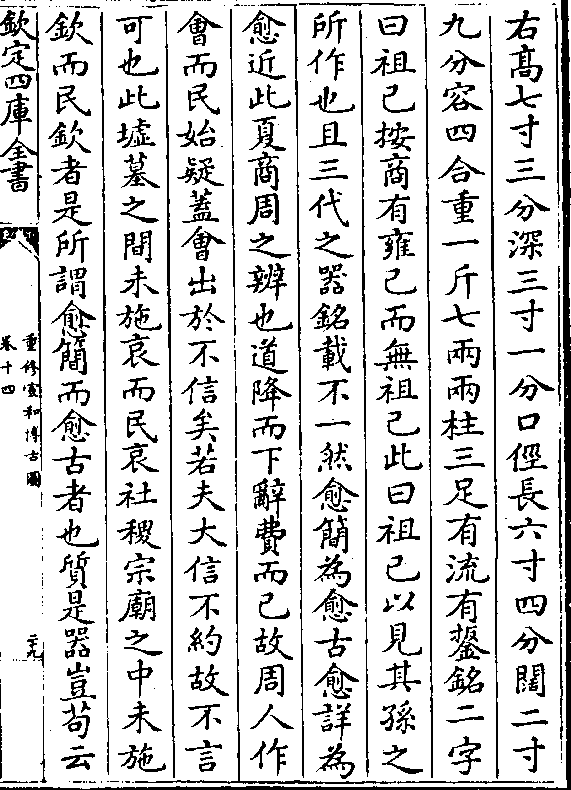 右髙七寸三分深三寸一分口徑長六寸四分闊二寸
九分容四合重一斤七兩兩柱三足有流有鋬銘二字
曰祖己按商有雍己而無祖己此曰祖己以見其孫之
所作也且三代之器銘載不一然愈簡為愈古愈詳為
愈近此夏商周之辨也道降而下辭費而已故周人作
會而民始疑蓋會出於不信矣若夫大信不約故不言
可也此墟墓之間未施哀而民哀社稷宗廟之中未施
欽而民欽者是所謂愈簡而愈古者也質是器豈苟云
欽定四庫全書
重修宣和博古圖
卷十四
二九